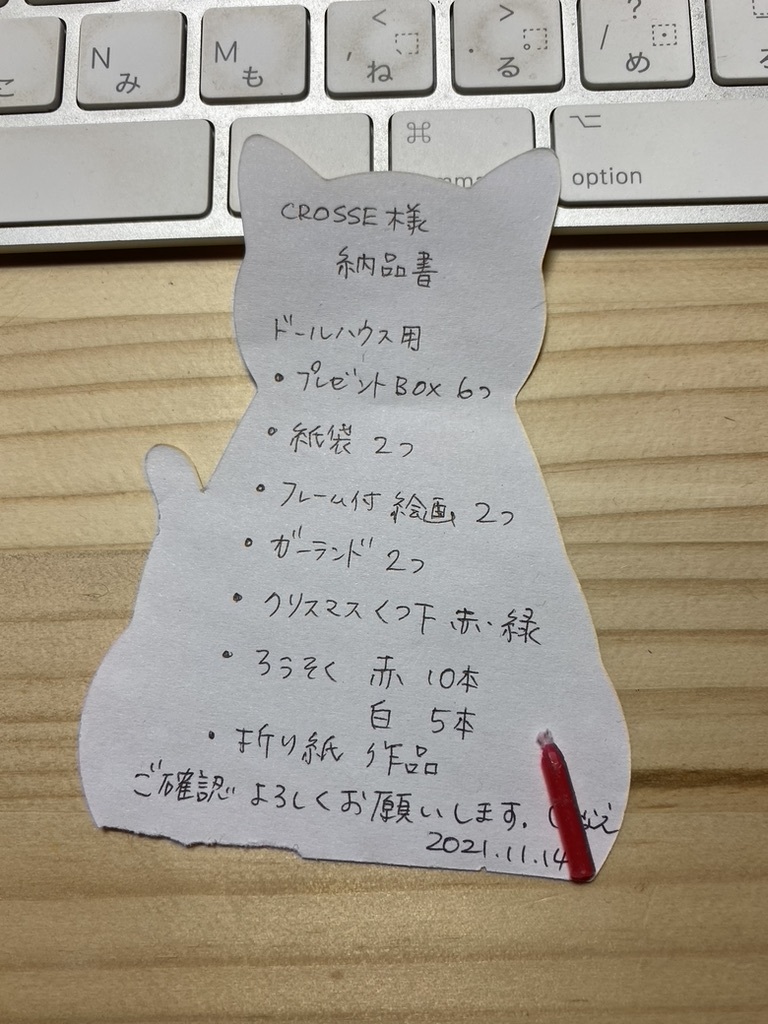 N み
M も
< , ね
> . る
? / め
⌘
⌥
option
CROSSE様
納品書
ドールハウス用
・プレゼントBOX 6つ
・紙袋 2つ
・フレーム付 絵画 2つ
・ガーランド 2つ
・クリスマスくつ下 赤・緑
・ろうそく 赤 10本
白 5本
・折り紙 作品
ご確認よろしくお願いします。
2021.11.14